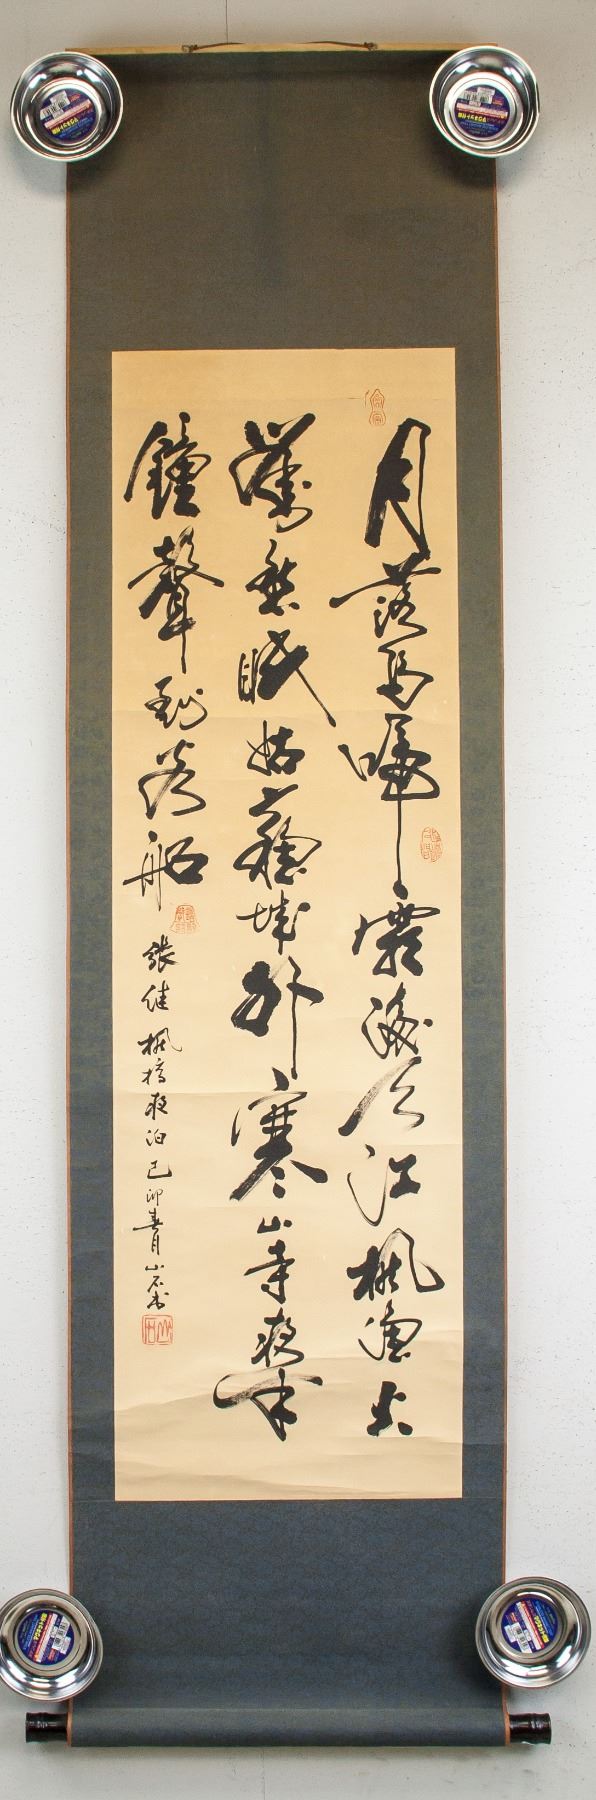 月落烏啼霜滿天江楓漁火
對愁眠姑蘇城外寒山寺夜半
鐘聲到客船
張継楓橋夜泊己卯春月山石書